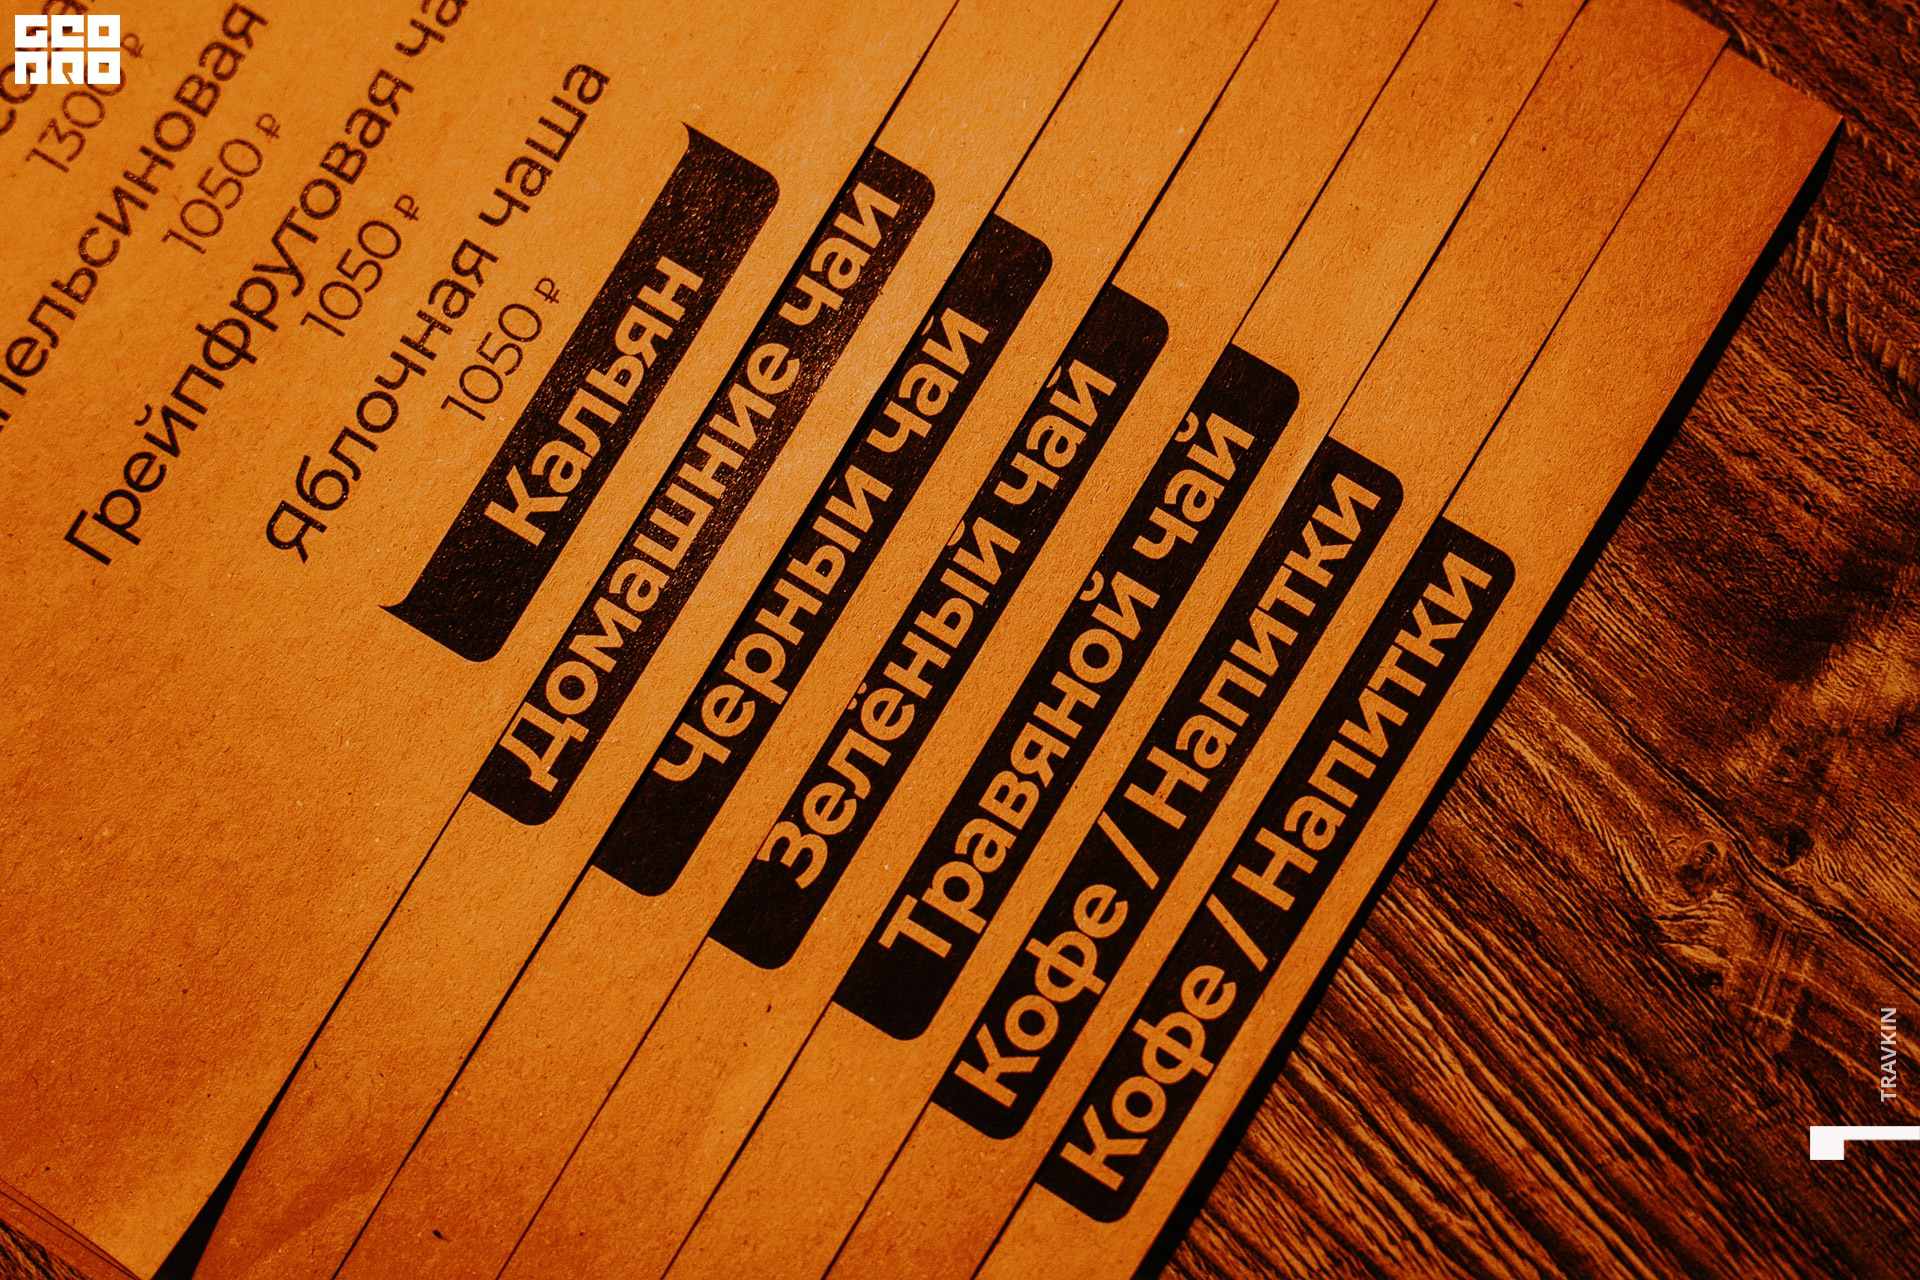 GEO
PRO
1300 ₽
1050 ₽
Грейпфрутовая
1050 ₽
Яблочная чаша
1050 ₽
Кальян
Домашние чаи
Черный чай
Зелёный чай
Травяной чай
Кофе / Напитки
Кофе / Напитки
TRAVKIN